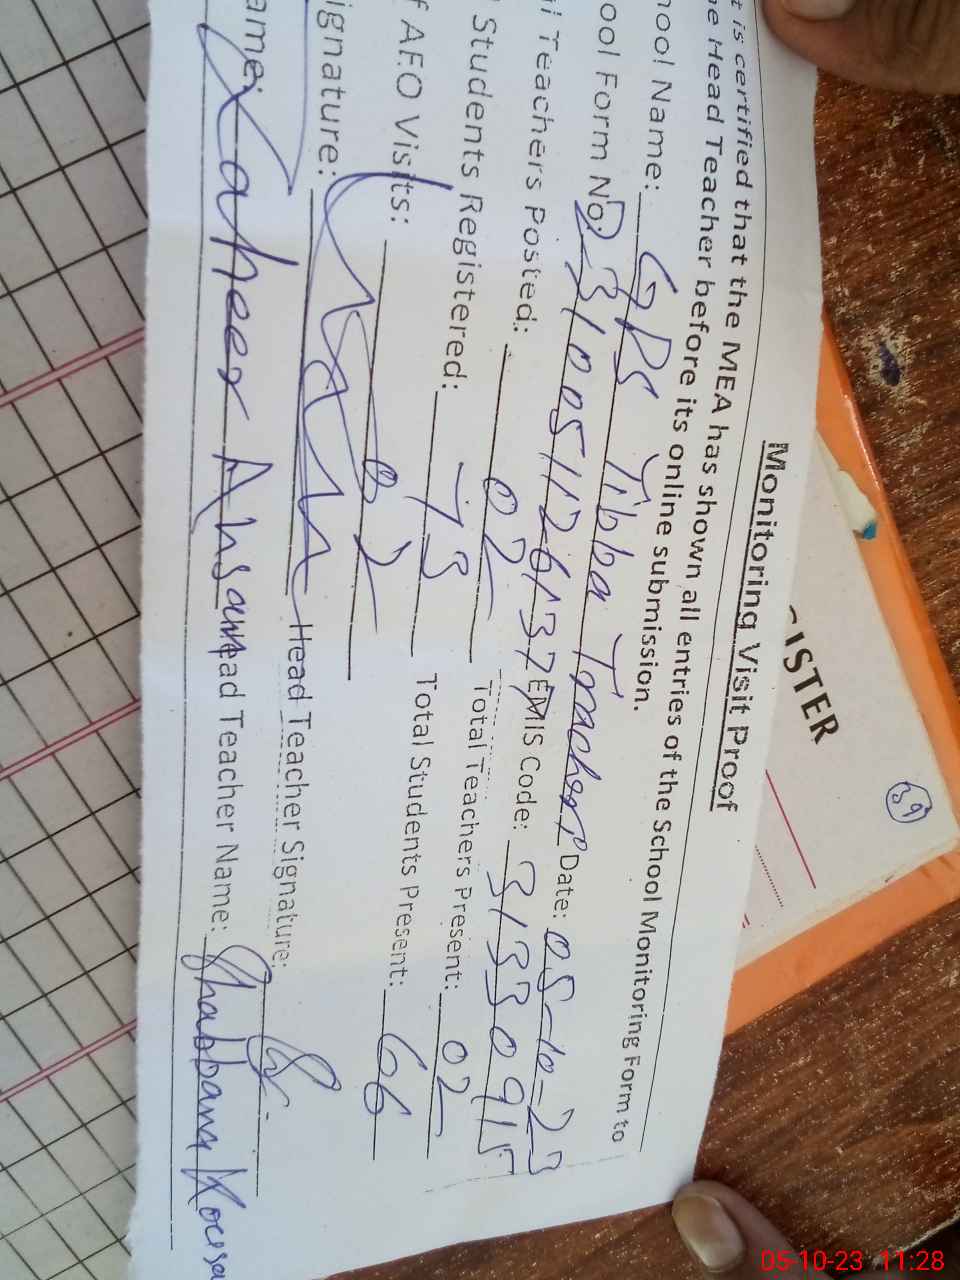 Monitoring Visit Proof
t is certified that the MEA has shown all entries of the School Monitoring Form to
he Head Teacher before its online submission.
hool Name: GPS Tibba Tracher Date: 05-10-23
ool Form No. 231005112613 37 EMIS Code: 31330915
l Teachers Posted: 02 Total Teachers Present: 02
Students Registered: 73 Total Students Present: 66
f AEO Visits: 02
ignature: Head Teacher Signature:
ame: Zaheer Ahsan Head Teacher Name: Shabbam Kousa
ISTER
39
05-10-23 11:28